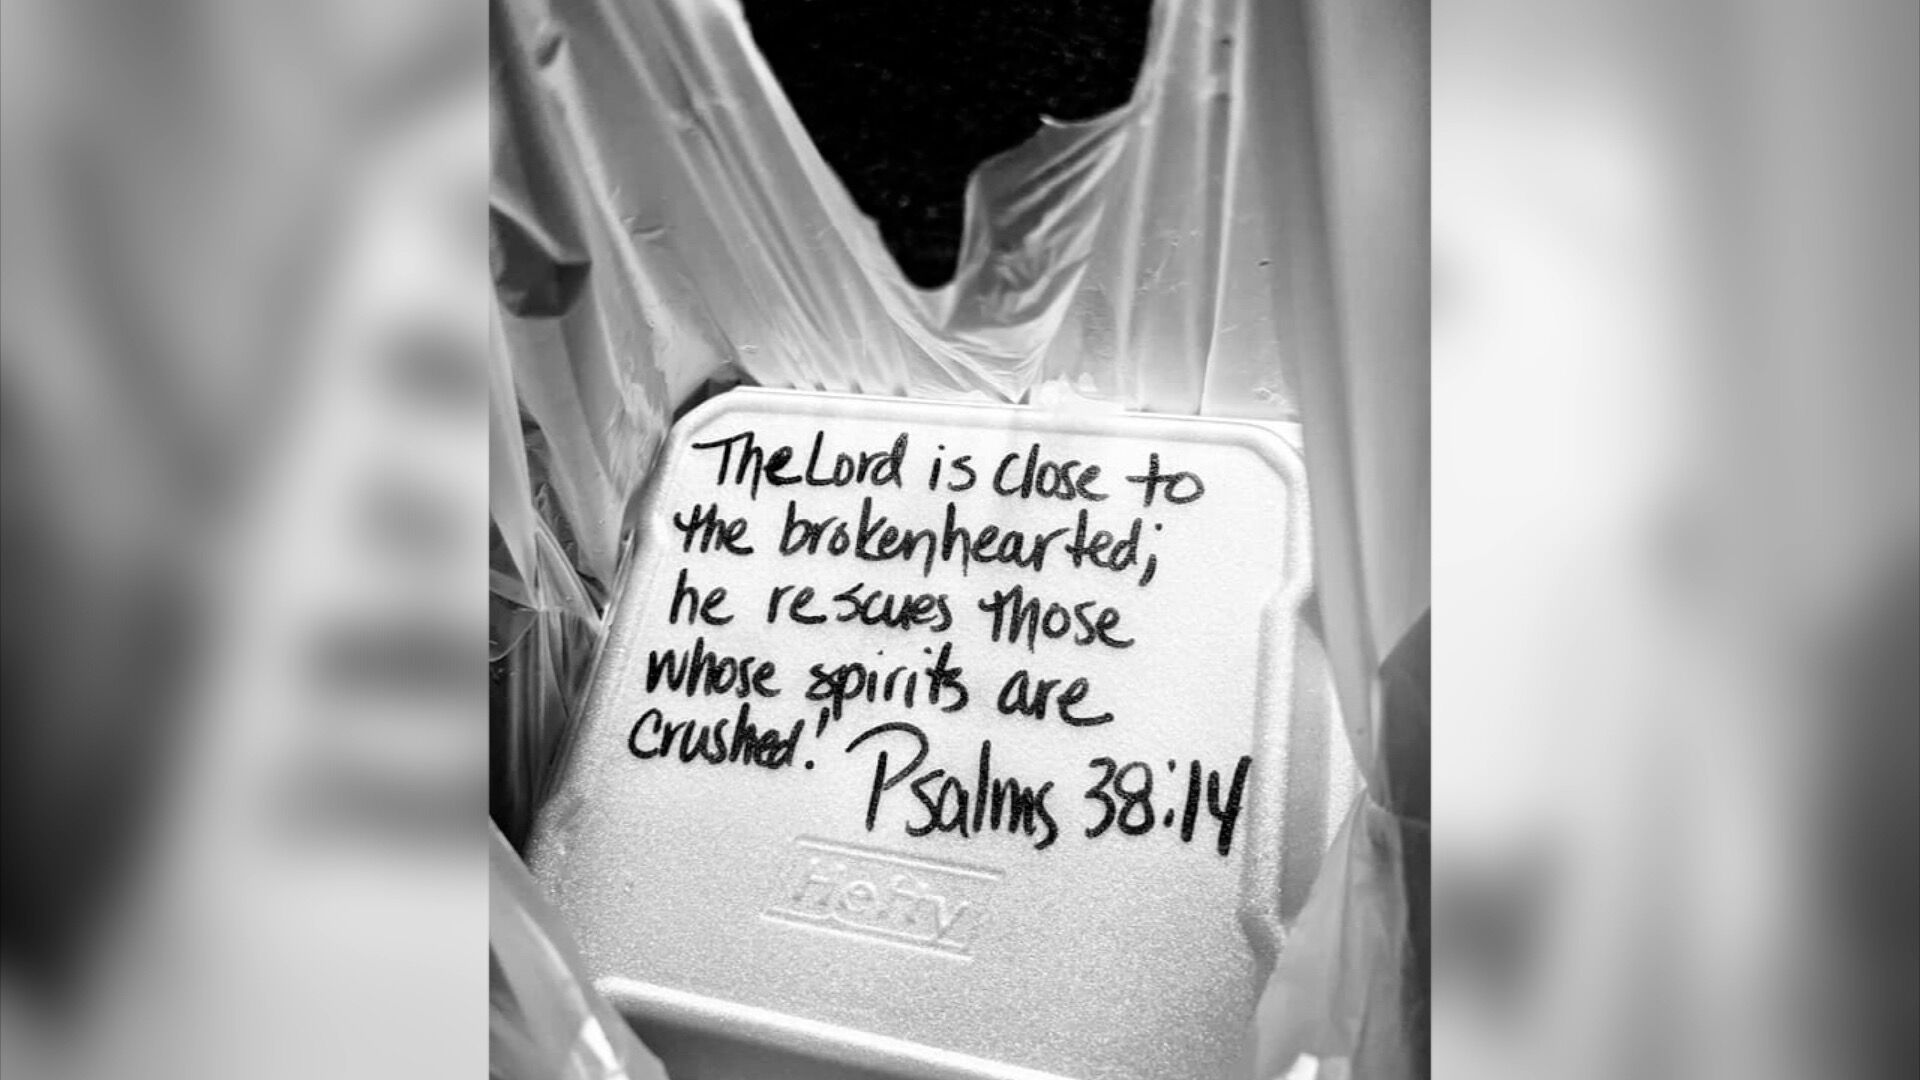 The Lord is close to
the brokenhearted;
he rescues those
whose spirits are
crushed.' Psalms 38:14
Hefty